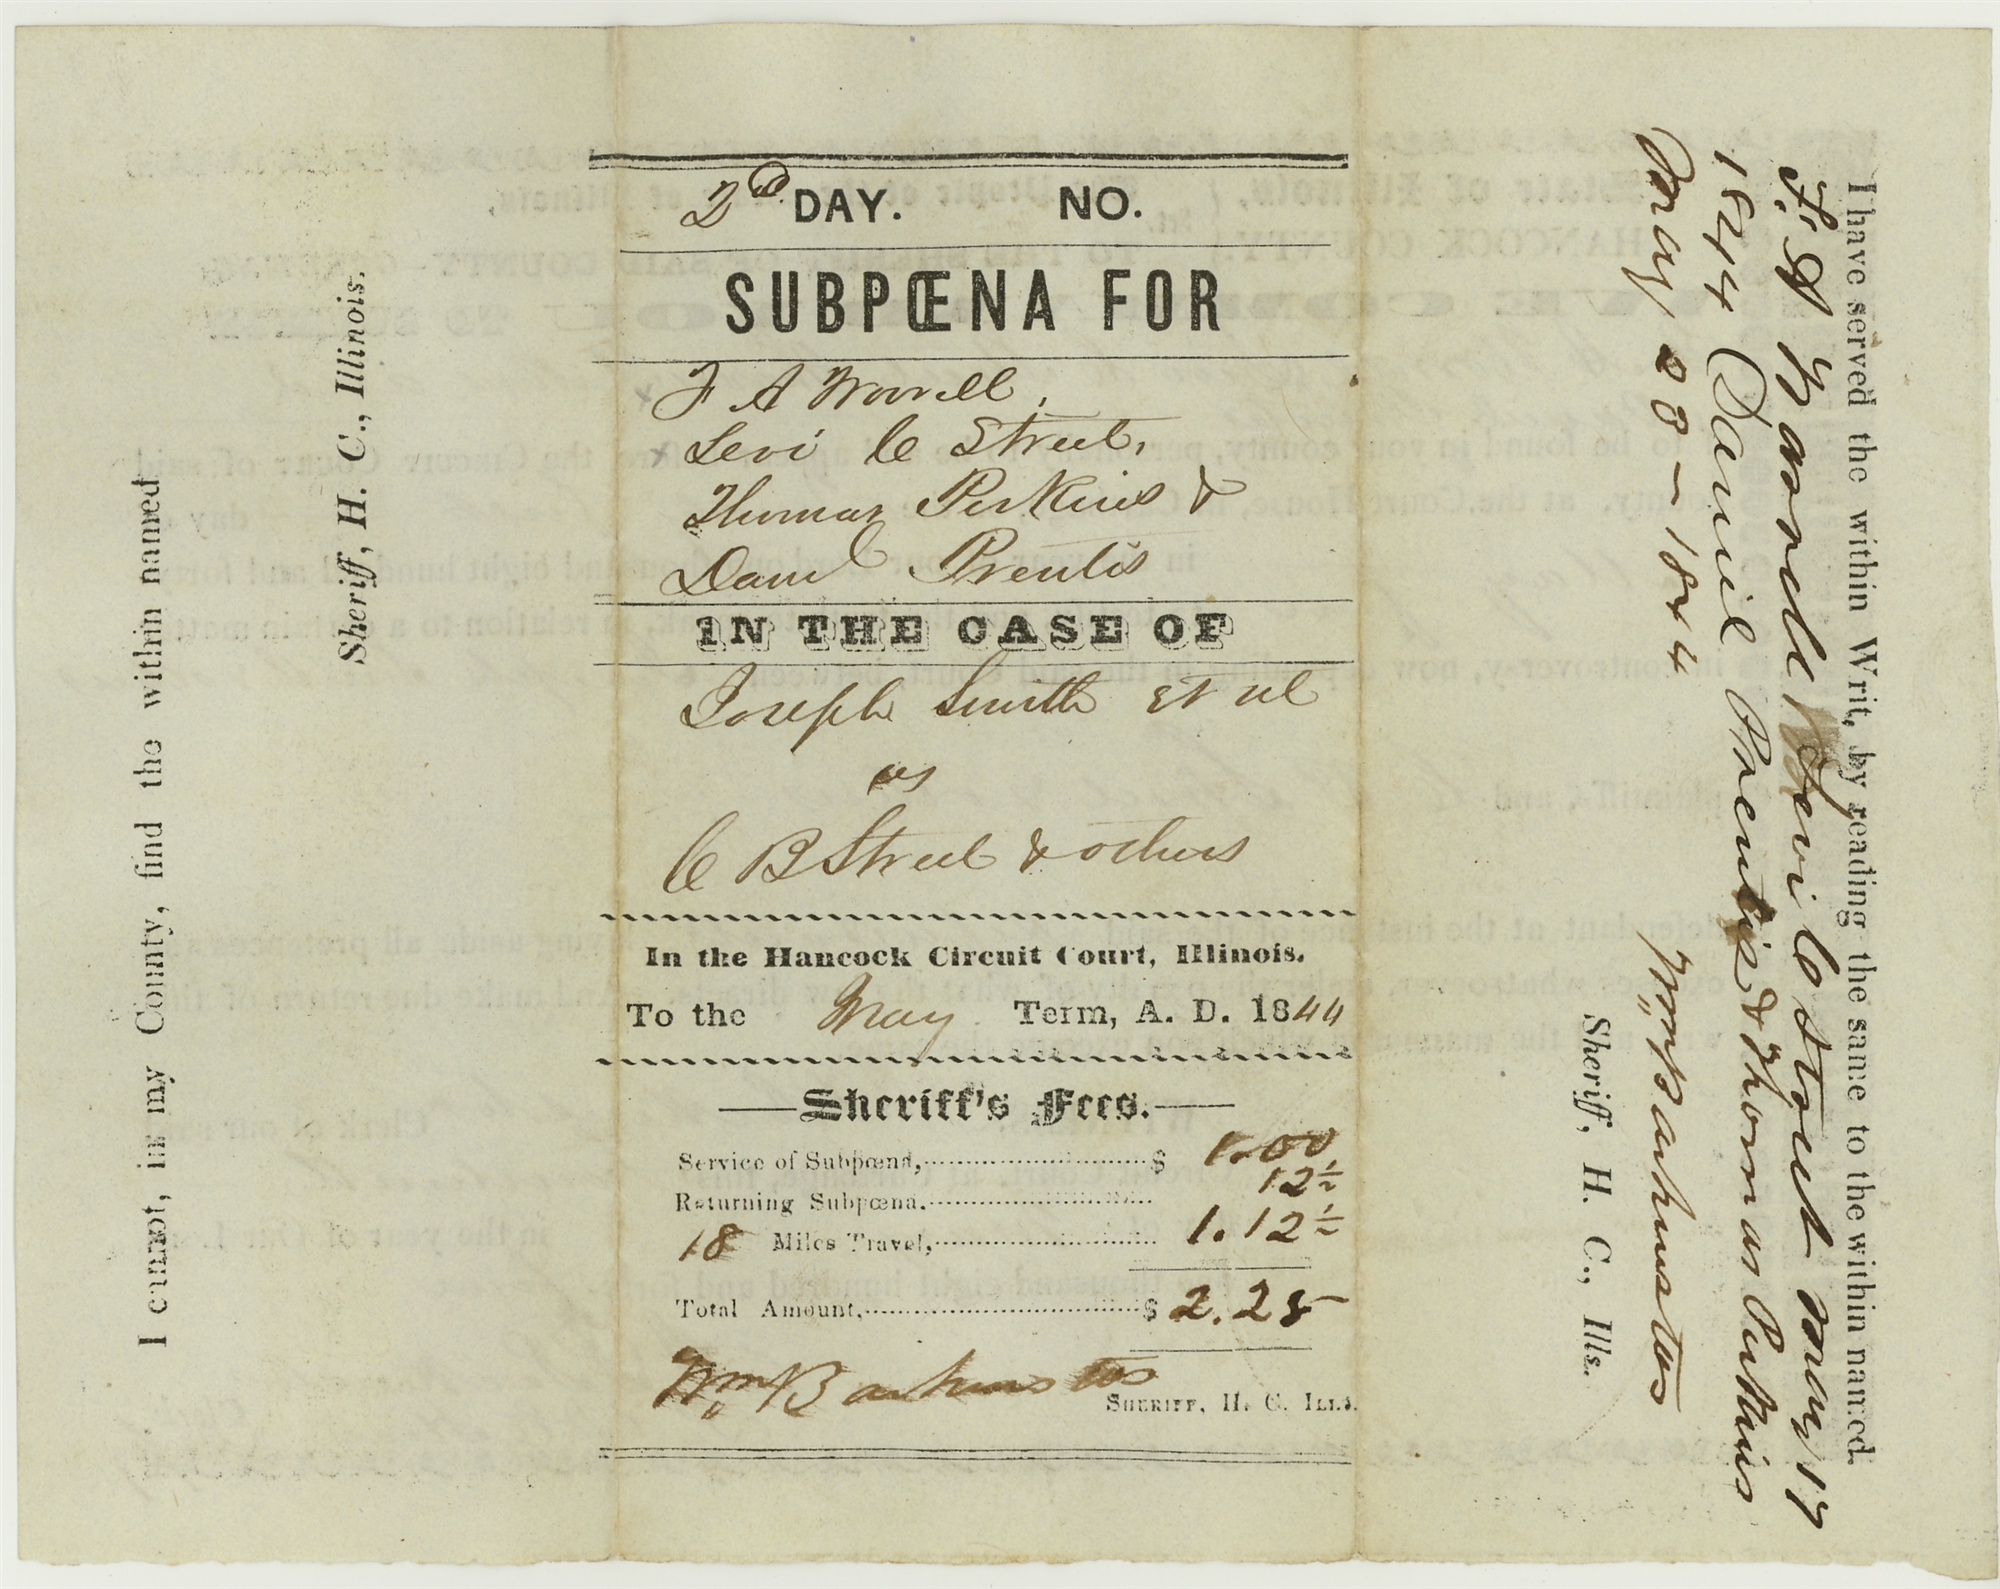 I cannot, in my County, find the within named
Sheriff, H. C., Illinois.
2d DAY. NO.
SUBPŒNA FOR
F A Worrell,
Levi C Street,
Thomas Perkins &
Daniel Prentis
IN THE CASE OF
Joseph Smith et al
vs
C B Street & others
In the Hancock Circuit Court, Illinois.
To the May Term, A. D. 1844
Sheriff's Fees.
Service of Subpœna, $ 1.00
Returning Subpœna. 12½
18 Miles Travel, 1.12½
Total Amount, $ 2.25
Wm Backenstos
SHERIFF, H. C. ILLS.
I have served the within Writ, by reading the same to the within named.
F. A Worrell Levi C Street may 17
1844 Daniel Prentis & Thomas Perkins
May 23 - 1844
Wm Backenstos
Sheriff, H. C., Ills.